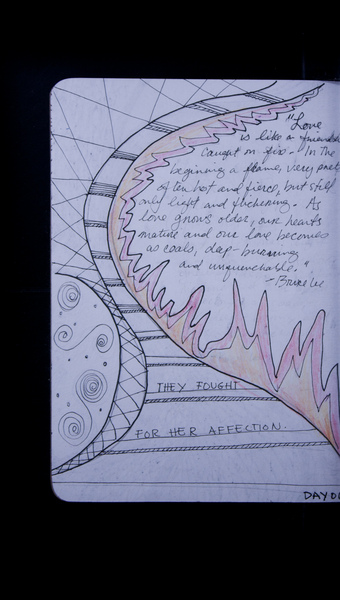 "Love
is like a friendship
caught on fire. In the
beginning a flame, very pretty
often hot and fierce, but still
only light and flickering. As
love grows older, our hearts
mature and our love becomes
as coals, deep-burning
and unquenchable."
- Bruce Lee
THEY FOUGHT
FOR HER AFFECTION.
DAY